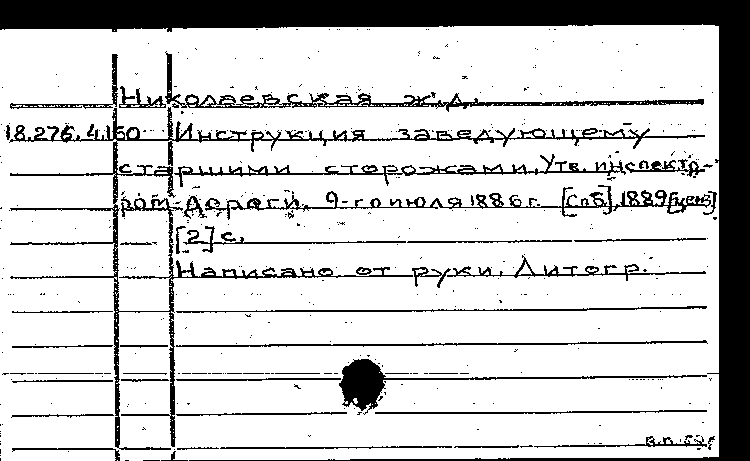 Николаевская ж.д.
18.276.4.160 Инструкция заведующему
старшими сторожами. Утв. инспекто-
ром дороги. 9-го июля 1886 г. [Спб], 1889 [ценз]
[2] с.
Написано от руки. Литогр.
В.п.